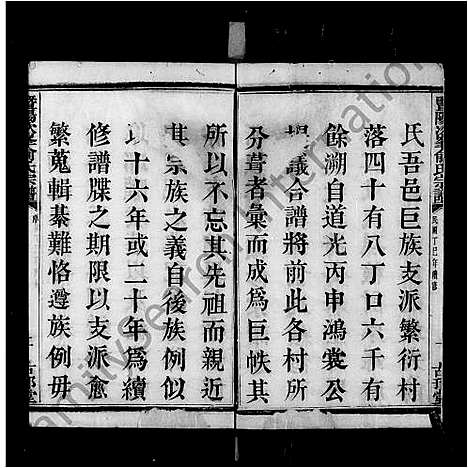 氏吾邑巨族支派繁衍村
落四十有八丁口六千有
餘溯自道光丙申鴻裳公
提議合譜將前此各村所
分葺者彙而成爲巨帙其
所以不忘其先祖而親近
其宗族之義自後族例似
以十六年或二十年爲續
修譜牒之期限以支派愈
繁蒐輯綦難恪遵族例毋
民國丁巳年續修
序
FamilySearch International